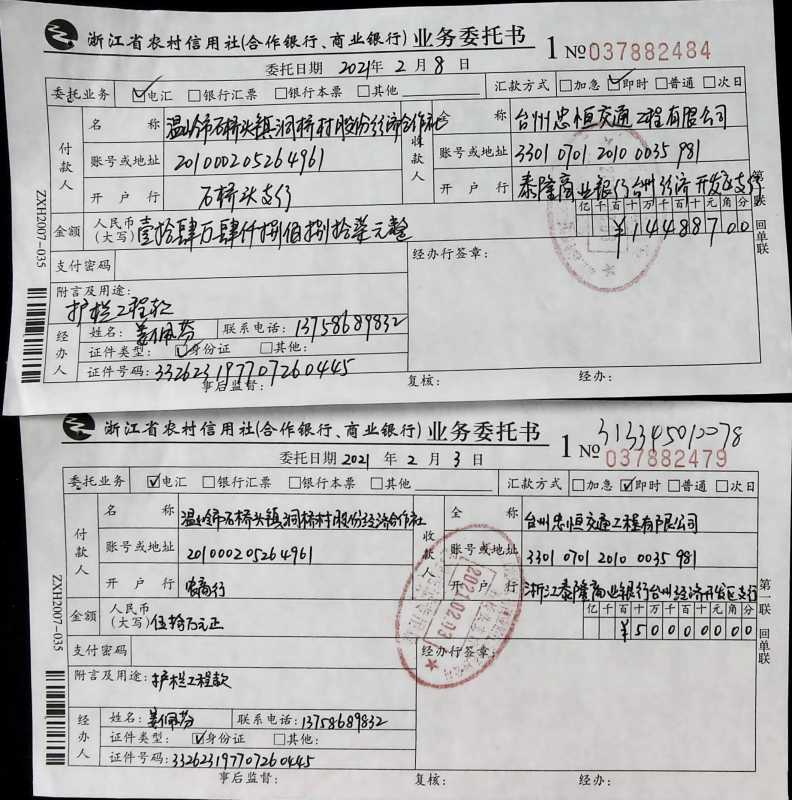 浙江省农村信用社(合作银行、商业银行)业务委托书 1 №037882484
委托日期 2021年 2 月 8 日
委托业务 电汇 银行汇票 银行本票 其他 汇款方式 加急 即时 普通 次日
付款人 名称 温岭市石桥头镇洞桥村股份经济合作社 收款人 全称 台州忠恒交通工程有限公司
账号或地址 201000205264961 账号或地址 3301 0701 2010 0035 981
开户行 石桥头支行 开户行 泰隆商业银行台州经济开发区支行
金额 人民币(大写) 壹拾肆万肆仟捌佰捌拾柒元整 亿千百十万千百十元角分 ¥14488700
支付密码 经办行签章:
附言及用途:
护栏工程款
经办人 姓名: 姜佩芬 联系电话: 13758689832
证件类型: 身份证 其他:
证件号码: 332623197707260445
事后监督: 复核: 经办:
第一联 回单联
ZXH2007-035
浙江省农村信用社(合作银行、商业银行)业务委托书 1 №037882479
313345010078
委托日期 2021 年 2 月 3 日
委托业务 电汇 银行汇票 银行本票 其他 汇款方式 加急 即时 普通 次日
付款人 名称 温岭市石桥头镇洞桥村股份经济合作社 收款人 全称 台州忠恒交通工程有限公司
账号或地址 201000205264961 账号或地址 3301 0701 2010 0035 981
开户行 农商行 开户行 浙江泰隆商业银行台州经济开发区支行
金额 人民币(大写) 伍拾万元正 亿千百十万千百十元角分 ¥50000000
支付密码 经办行签章:
附言及用途: 护栏工程款
2021.02.03
经办人 姓名: 姜佩芬 联系电话: 13758689832
证件类型: 身份证 其他:
证件号码: 332623197707260445
事后监督: 复核: 经办:
第一联 回单联
ZXH2007-035